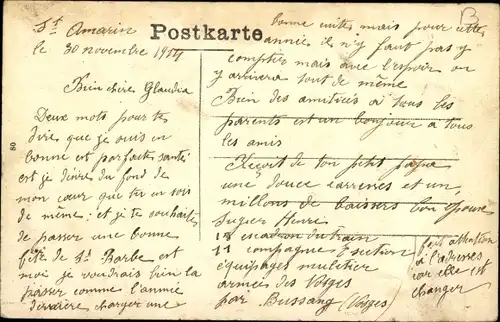 St Amarin
le 30 novembre 1914
Postkarte
Bien chère Glaudia
Deux mots pour te
dire que je suis en
bonne est parfaite santé
est je désire du fond de
mon cœur que tu en sois
de même : et je te souhaite
de passer une bonne
fête de Ste Barbe est
moi je voudrais bien la
passer comme l'année
dernière changer une
bonne cuites mais pour cette
année il n'y faut pas y
compter mais avec l'espoir on
y arrivera tout de même
Bien des amitiées à tous les
parents est un bonjour a tous
les amis
Reçoit de ton petit
une douce carresses et un
millons de baisers ton époux
Henri
escadron du train
11 compagnie section
équipages muletier
armée des Vosges
par Bussang (Vosges)
fait attention
à l'adresses
car elle est
changer
80
B